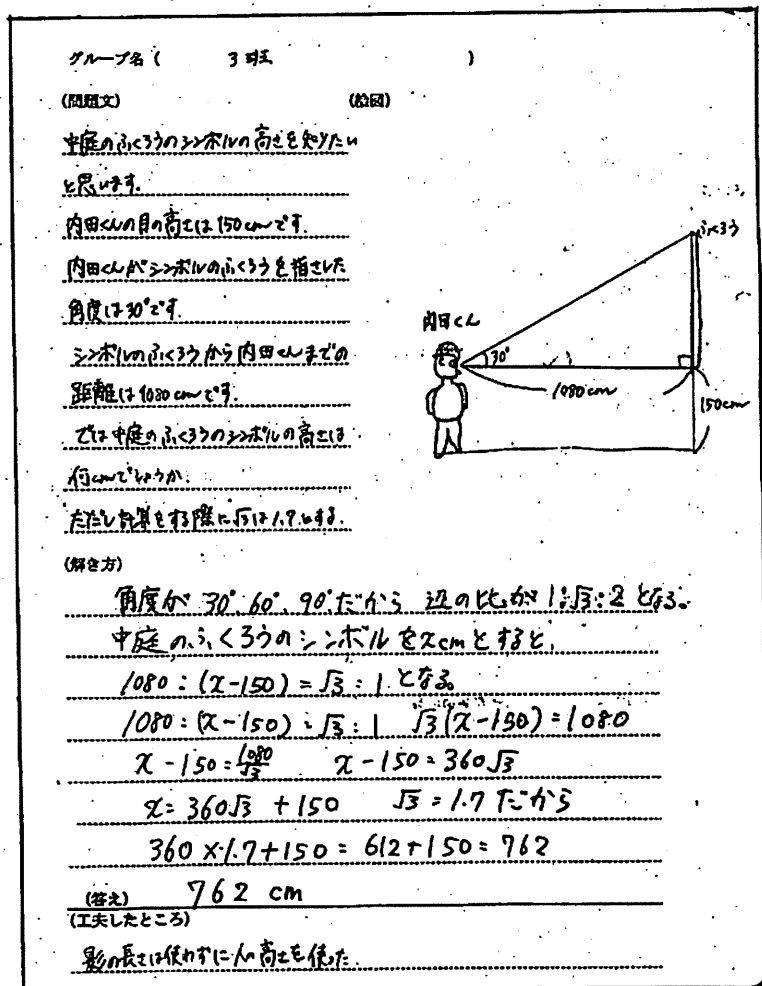 グループ名(　3班　)
(問題文)　(絵図)
中庭のふくろうのシンボルの高さを知りたい
と思います。
内田くんの目の高さは150cmです。
内田くんがシンボルのふくろうを指さした
角度は30°です。
シンボルのふくろうから内田くんまでの
距離は1080cmです。
では中庭のふくろうのシンボルの高さは
何cmでしょうか。
ただし計算をする際に√3は1.7とする。
ふくろう
内田くん
30°
1080cm
150cm
(解き方)
角度が30°、60°、90°だから 辺の比が1:√3:2となる。
中庭のふくろうのシンボルをxcmとすると、
1080:(x-150)=√3:1 となる。
1080:(x-150)=√3:1　√3(x-150)=1080
x-150=1080/√3　x-150=360√3
x=360√3+150　√3=1.7だから
360×1.7+150=612+150=762
(答え)　762 cm
(工夫したところ)
影の長さは使わずに人の高さを使った。